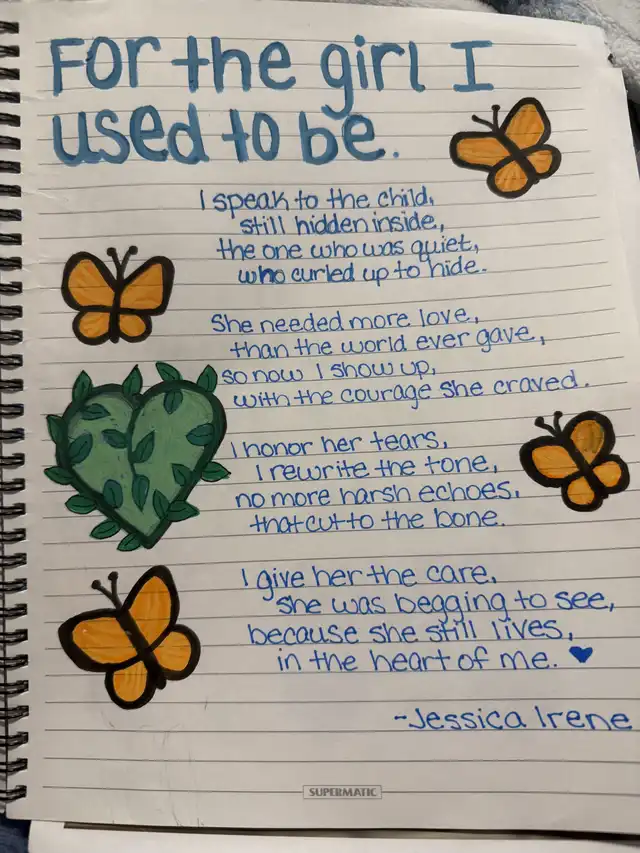 For the girl I
used to be.
I speak to the child,
still hidden inside,
the one who was quiet,
who curled up to hide.
She needed more love,
than the world ever gave,
so now I show up,
with the courage she craved.
I honor her tears,
I rewrite the tone,
no more harsh echoes,
that cut to the bone.
I give her the care,
she was begging to see,
because she still lives,
in the heart of me.
-Jessica Irene
SUPERMATIC